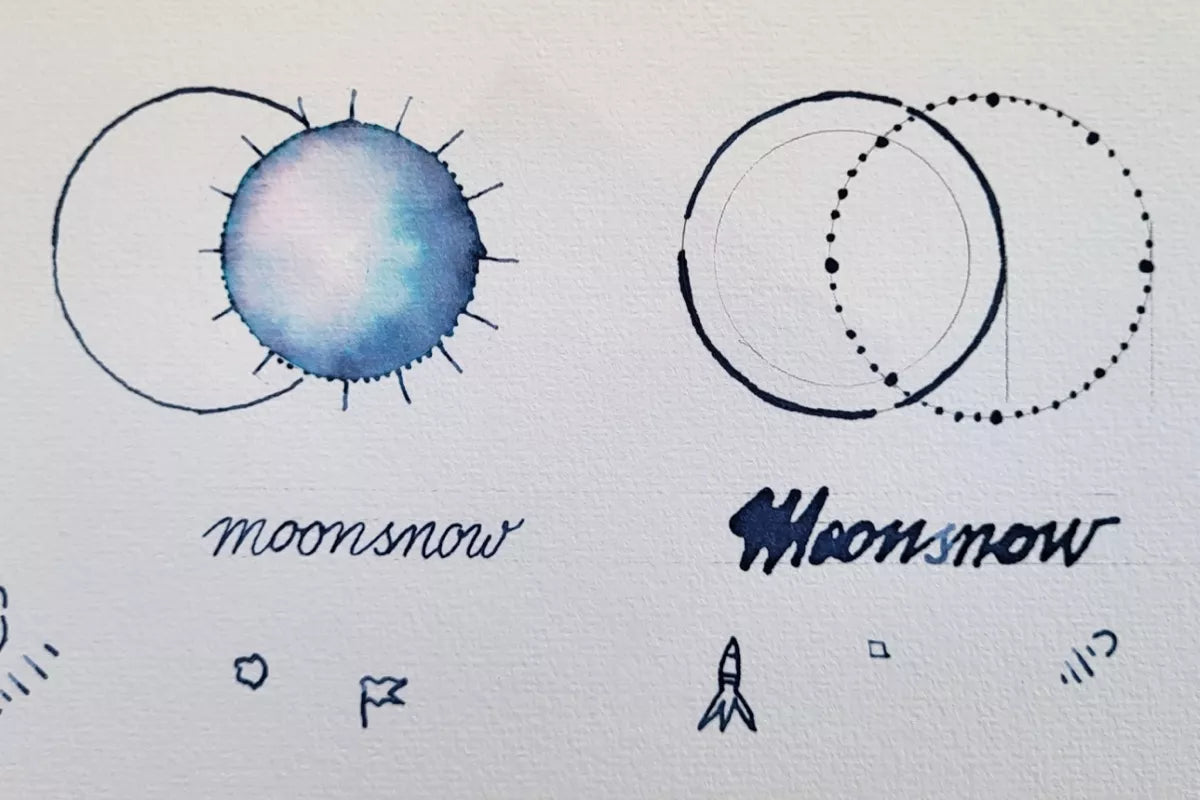 moonsnow
Moonsnow